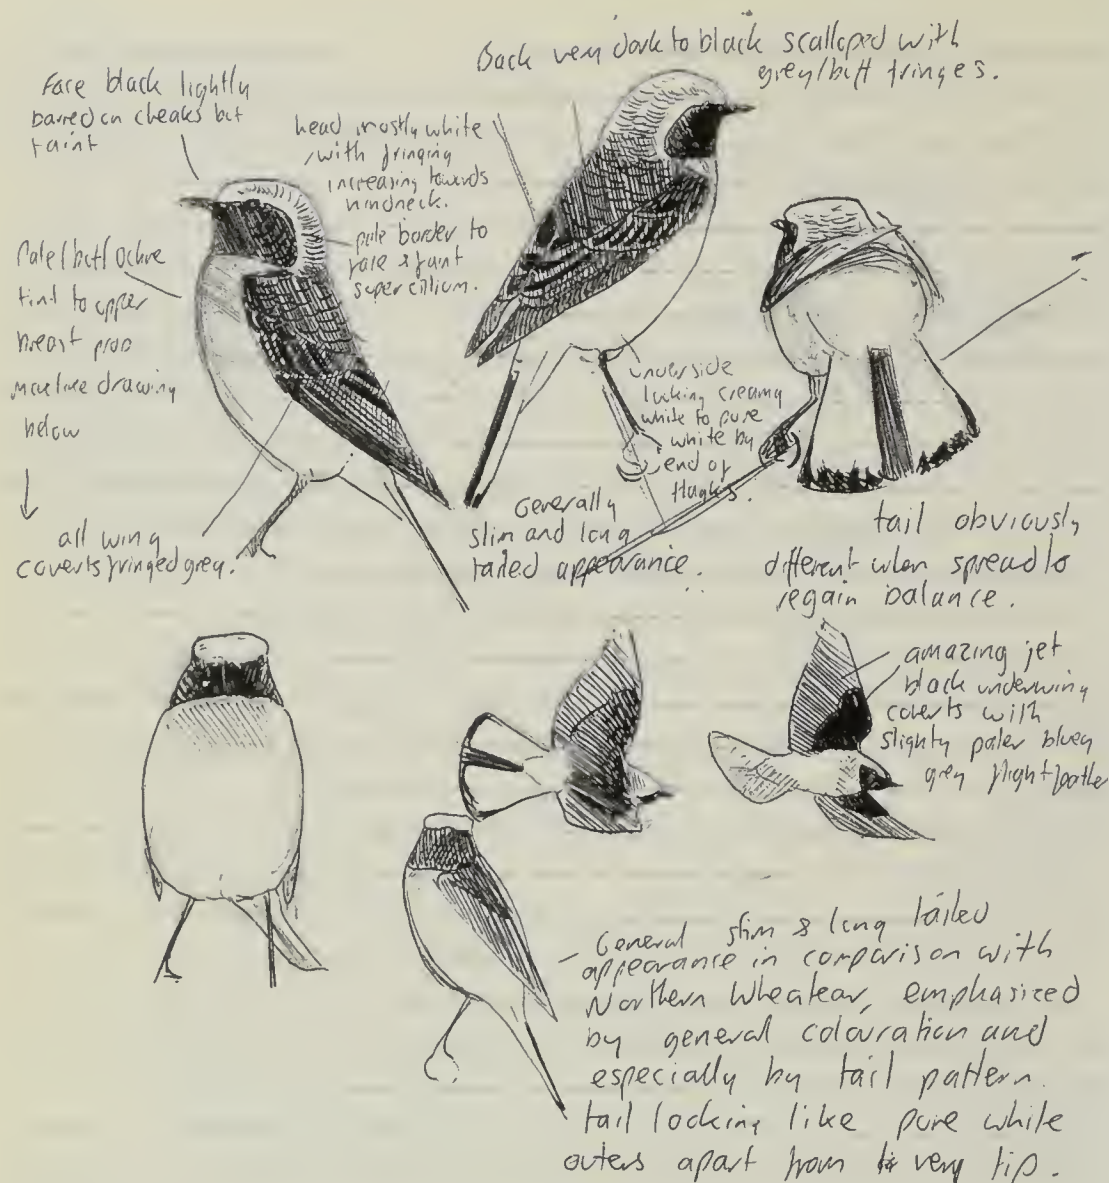 Back very dark to black scalloped with
grey/buff fringes.
Face black lightly
barred on cheaks but
faint
head mostly white
with fringing
increasing towards
hindneck.
pale border to
face & faint
supercilium.
Pale/buff/ochre
tint to upper
breast
drawing
below
all wing
coverts fringed grey.
underside
looking creamy
white to pure
white by
end of
flanks.
Generally
slim and long
tailed appearance.
tail obviously
different when spread to
regain balance.
amazing jet
black underwing
coverts with
slighty paler bluey
grey flight feather
General slim & long tailed
appearance in comparison with
Northern Wheatear, emphasized
by general colouration and
especially by tail pattern.
tail looking like pure white
outers apart from very tip.